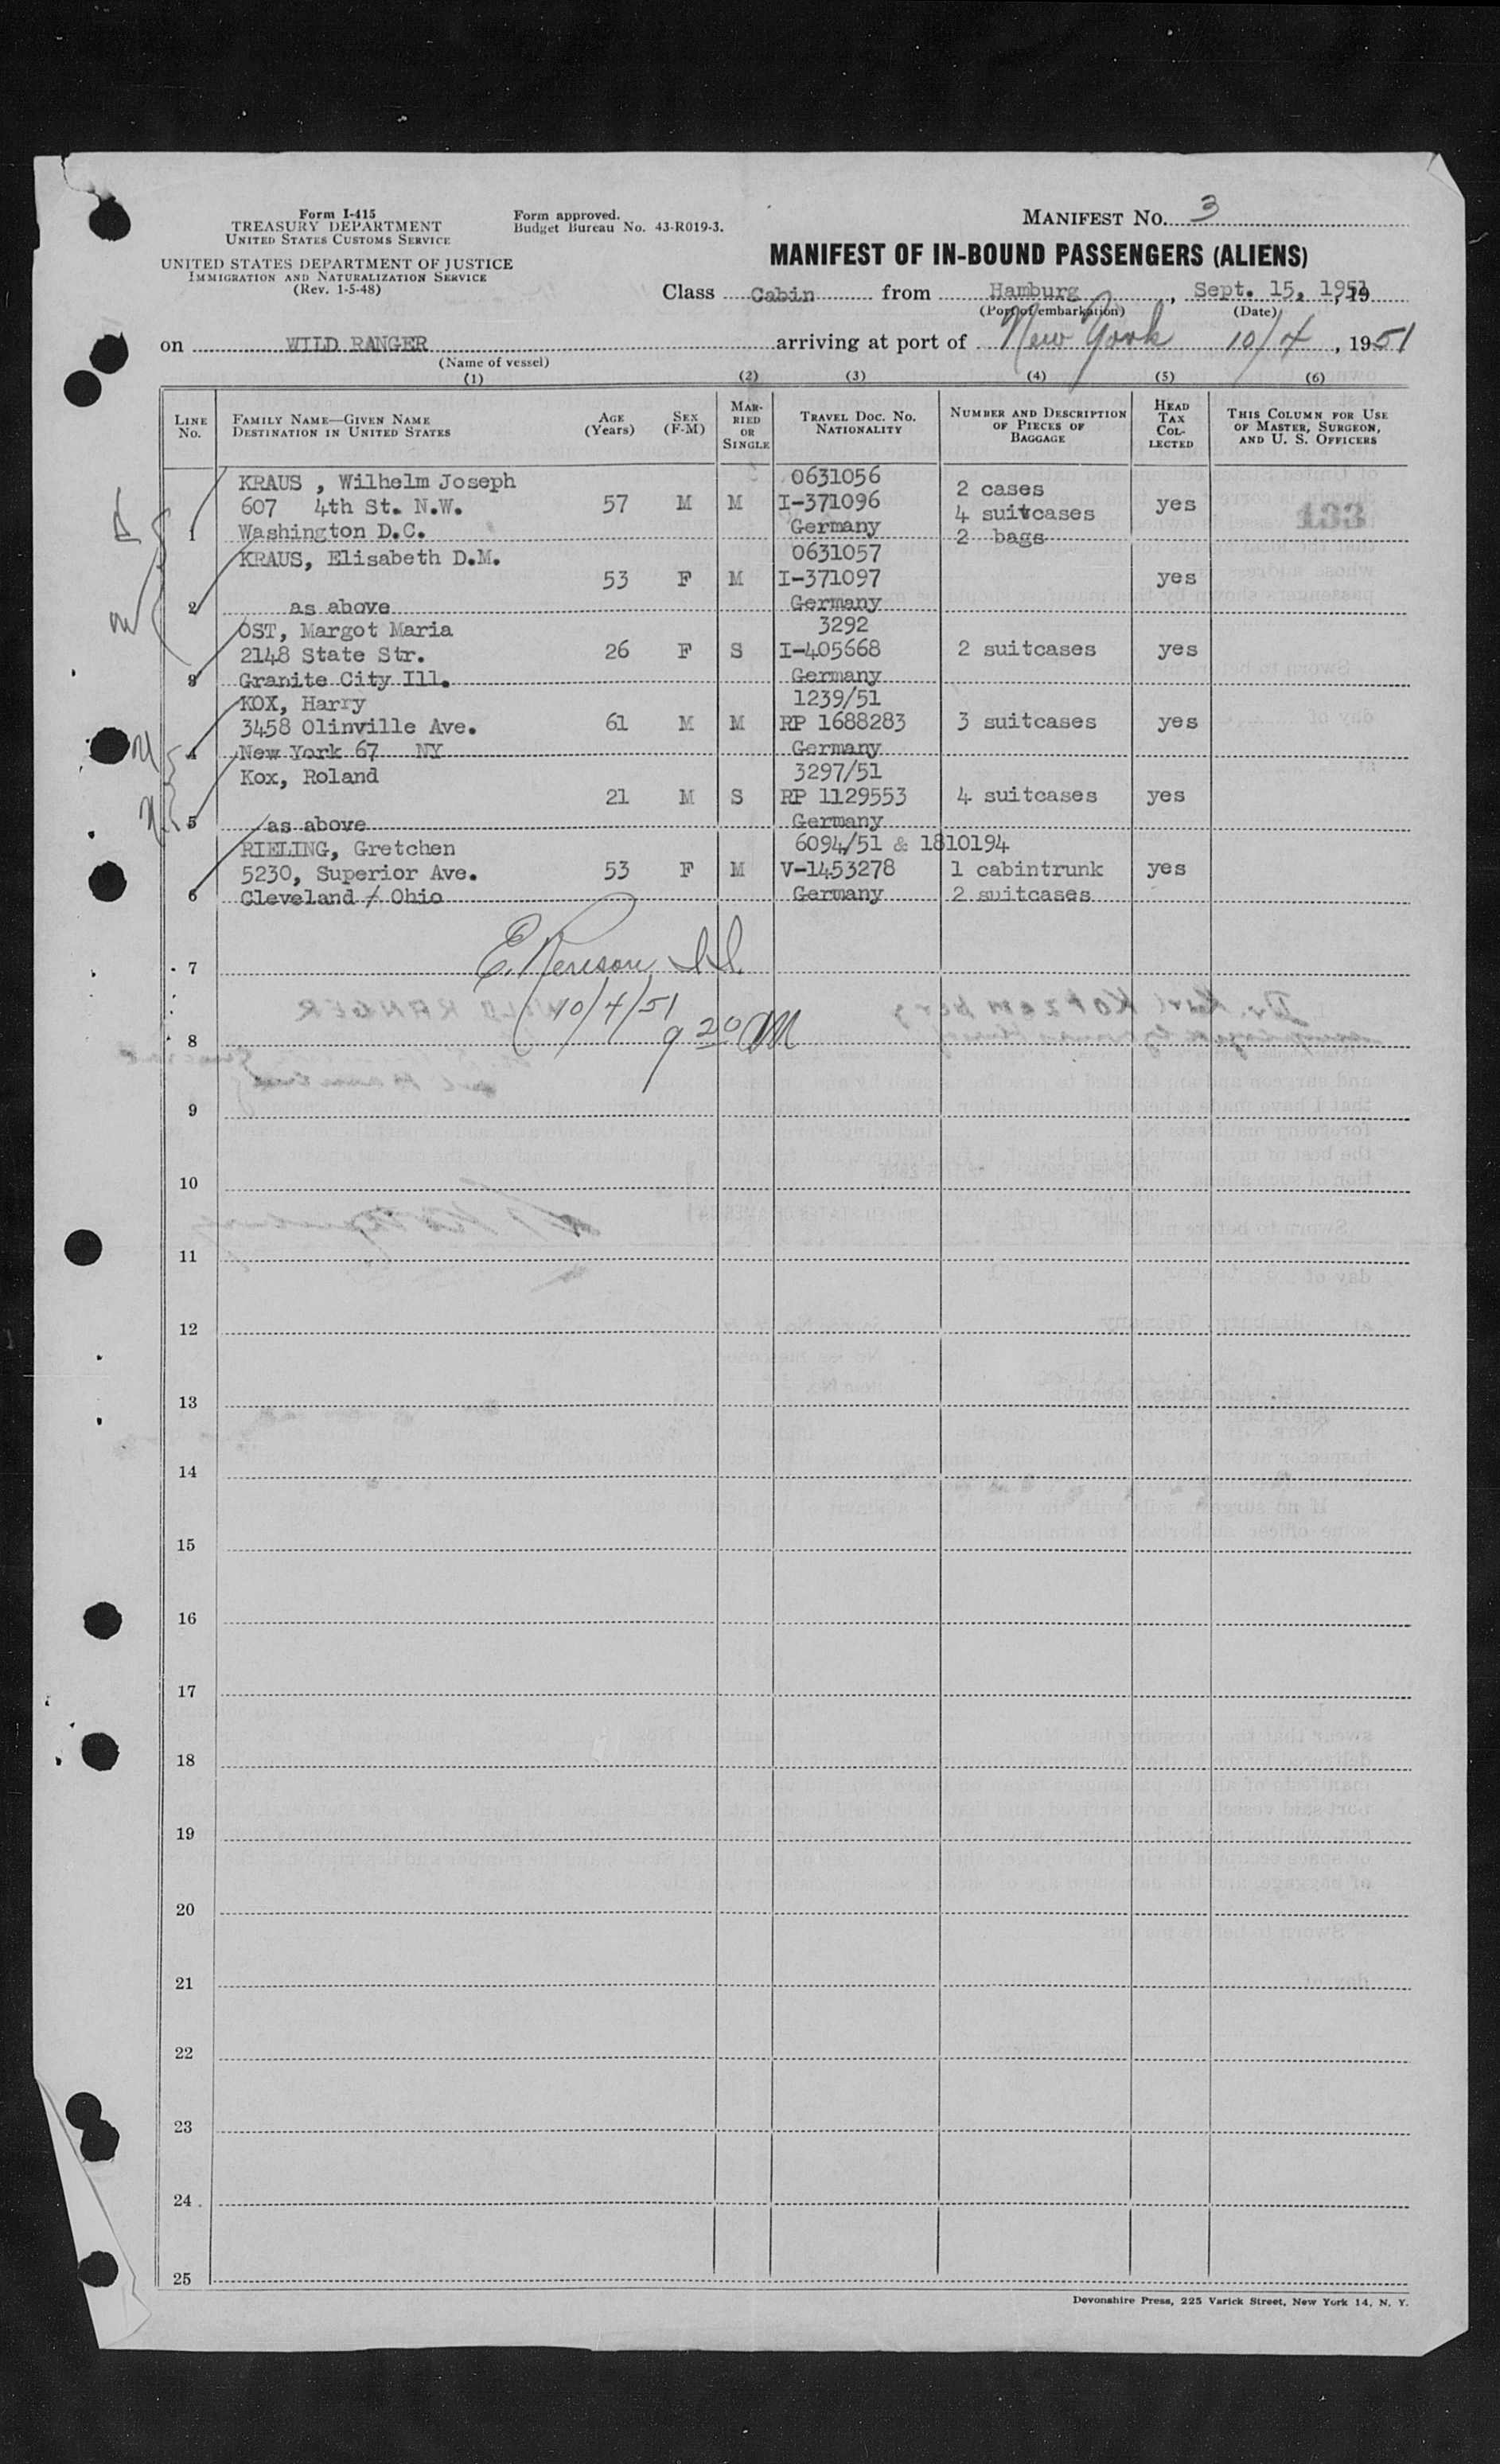 Form I-415
TREASURY DEPARTMENT
UNITED STATES CUSTOMS SERVICE
UNITED STATES DEPARTMENT OF JUSTICE
IMMIGRATION AND NATURALIZATION SERVICE
(Rev. 1-5-48)
Form approved.
Budget Bureau No. 43-R019-3.
MANIFEST NO. 3
MANIFEST OF IN-BOUND PASSENGERS (ALIENS)
Class Cabin from Hamburg, Sept. 15, 1951, 19
(Port of embarkation) (Date)
on WILD RANGER arriving at port of New York 10/4, 1951
(Name of vessel)
(1) (2) (3) (4) (5) (6)
LINE NO. FAMILY NAME—GIVEN NAME DESTINATION IN UNITED STATES AGE (Years) SEX (F-M) MARRIED OR SINGLE TRAVEL DOC. NO. NATIONALITY NUMBER AND DESCRIPTION OF PIECES OF BAGGAGE HEAD TAX COLLECTED THIS COLUMN FOR USE OF MASTER, SURGEON, AND U. S. OFFICERS
KRAUS , Wilhelm Joseph 0631056 2 cases
607 4th St. N.W. 57 M M I-371096 4 suitcases yes 133
1 Washington D.C. Germany 2 bags
KRAUS, Elisabeth D.M. 0631057
53 F M I-371097 yes
2 as above Germany
OST, Margot Maria 3292
2148 State Str. 26 F S I-405668 2 suitcases yes
3 Granite City Ill. Germany
KOX, Harry 1239/51
3458 Olinville Ave. 61 M M RP 1688283 3 suitcases yes
4 New York 67 NY Germany
Kox, Roland 3297/51
21 M S RP 1129553 4 suitcases yes
5 as above Germany
RIELING, Gretchen 6094/51 & 1810194
5230, Superior Ave. 53 F M V-1453278 1 cabintrunk yes
6 Cleveland / Ohio Germany 2 suitcases
7
10/4/51
8 9 20 M
9
10
11
12
13
14
15
16
17
18
19
20
21
22
23
24
25
Devonshire Press, 225 Varick Street, New York 14, N. Y.